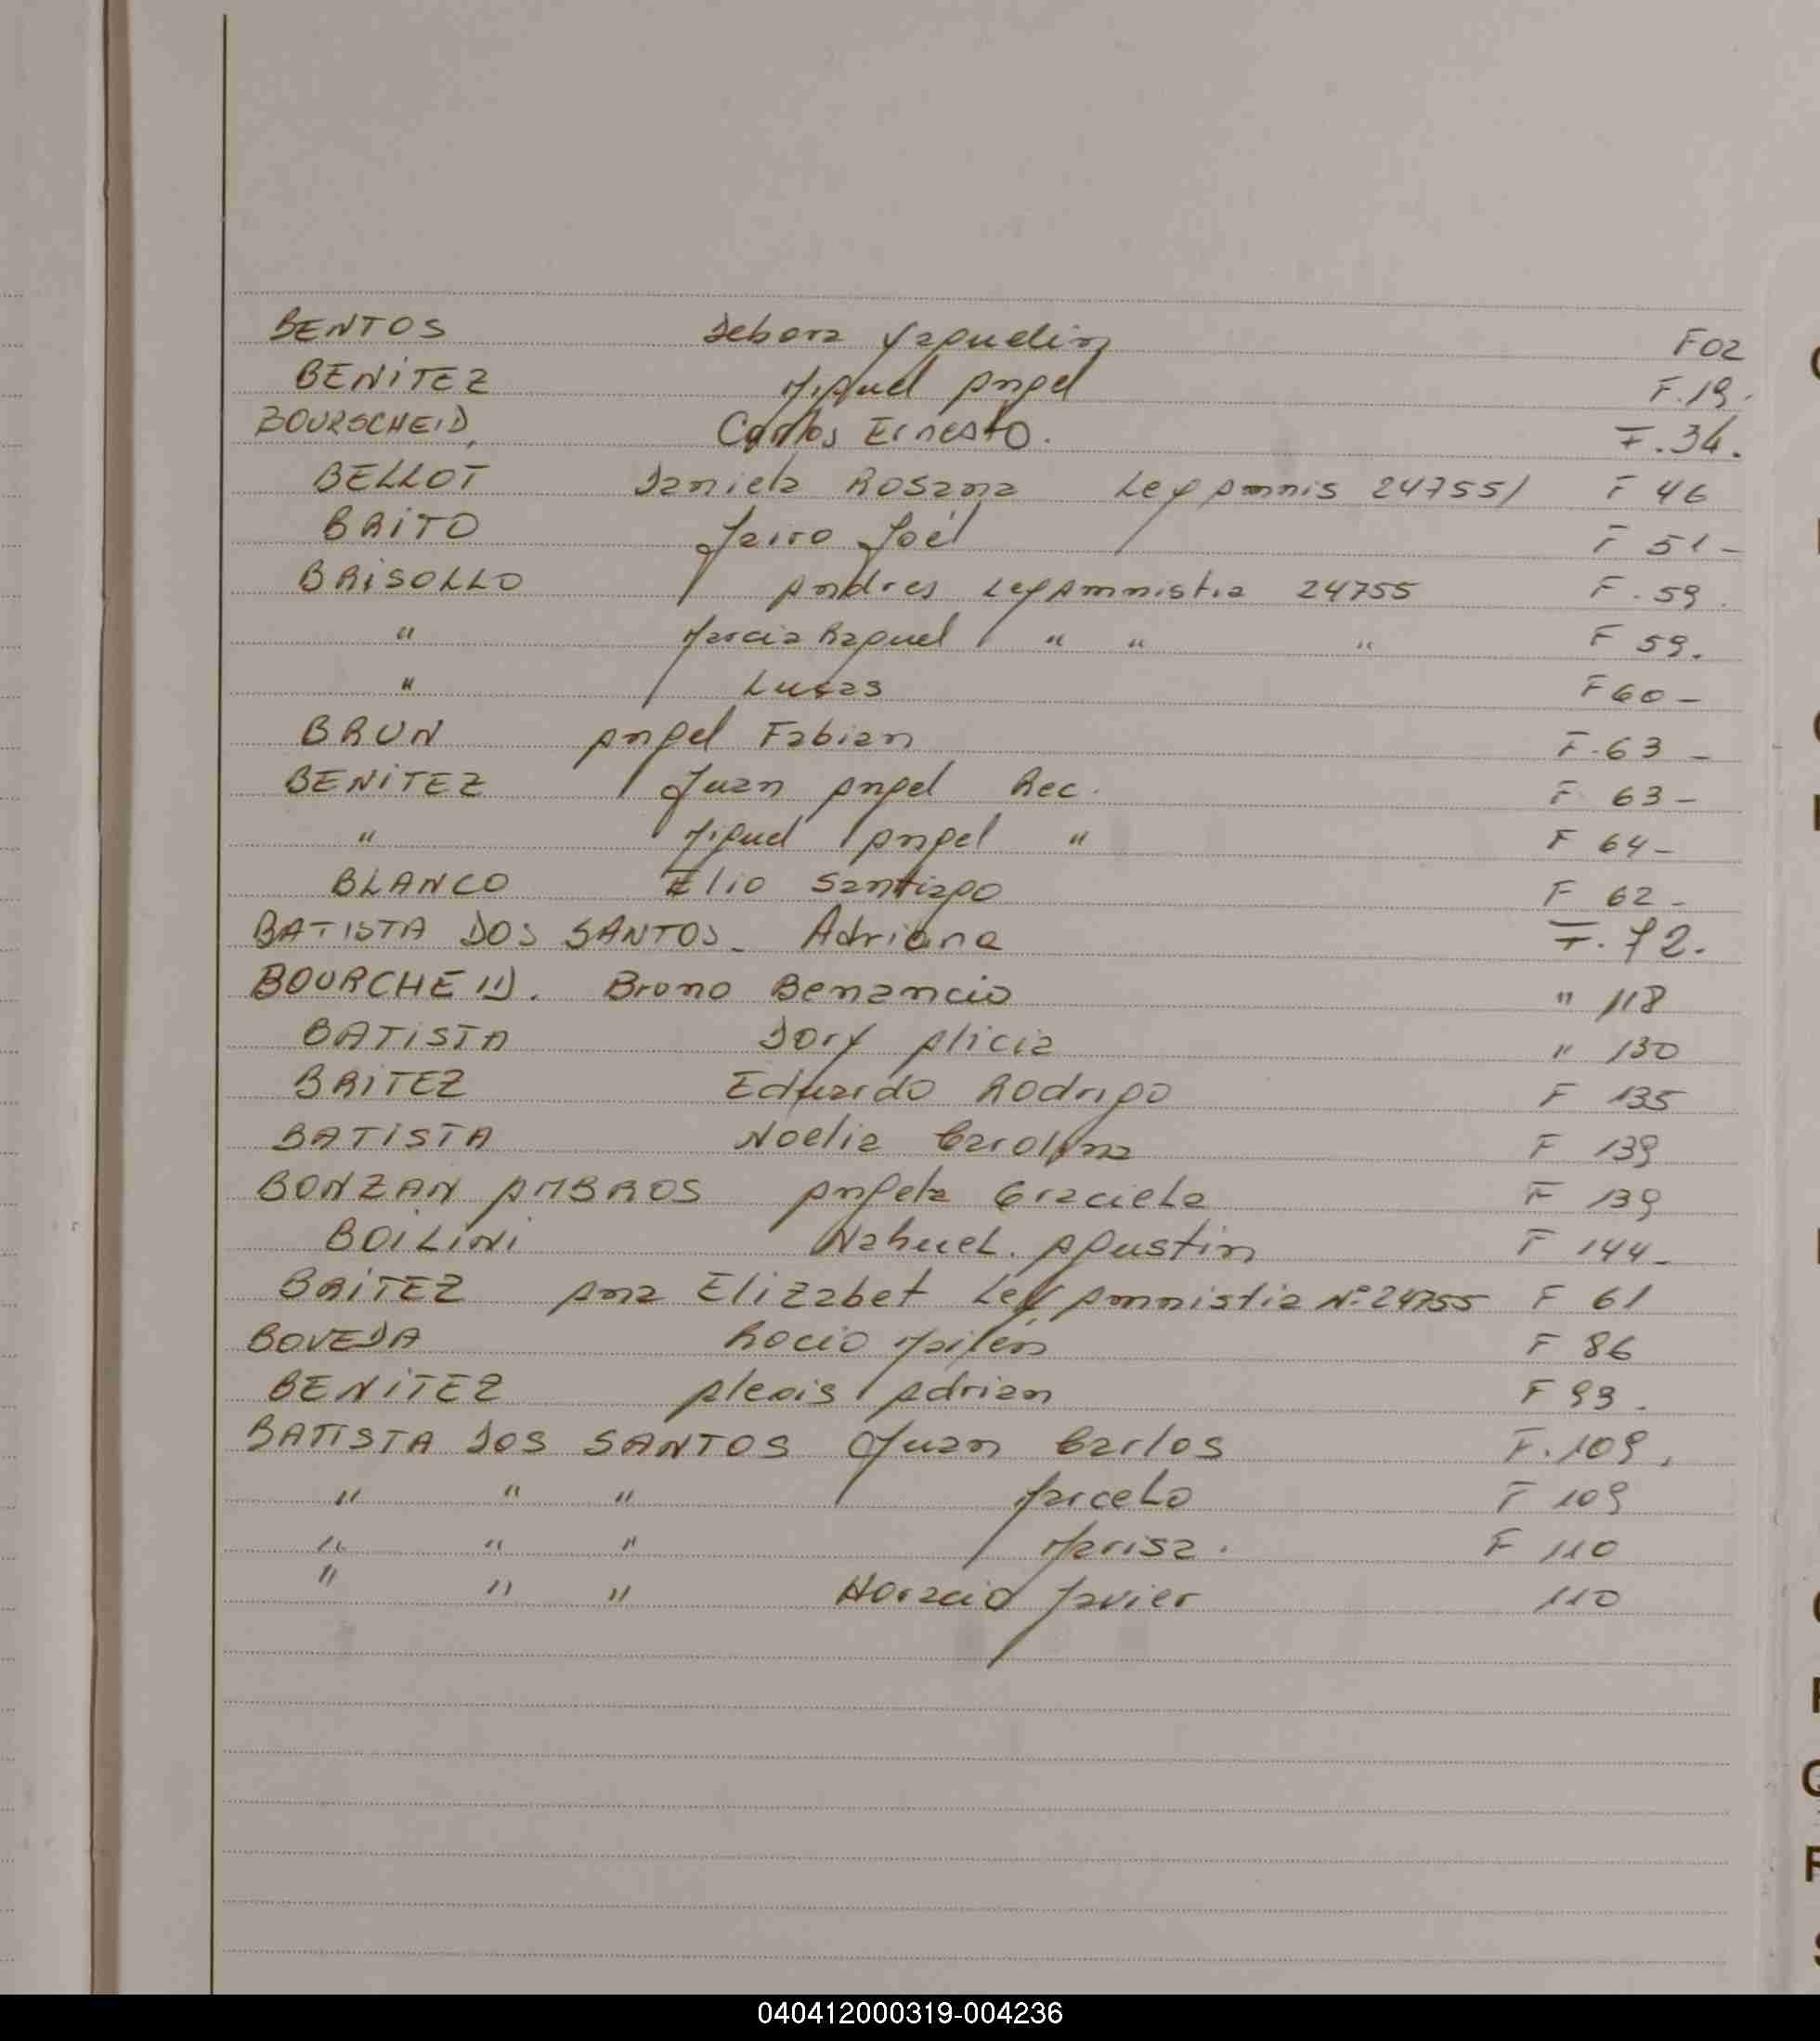 BENTOS Debora Yaquelin F02
BENITEZ Miguel Angel F.19.
BOURSCHEID, Carlos Ernesto. F.34.
BELLOT Daniela Rosana Ley Amnis 24755/ F 46
BRITO Jairo Joél F 51-
BRISOLLO Andres Ley Amnistia 24755 F.59.
" Marcia Raquel " " " F 59.
" Lucas F60-
BRUN Angel Fabian F.63-
BENITEZ Juan Angel Rec. F 63-
" Miguel Angel " F 64-
BLANCO Elio Santiago F 62-
BATISTA DOS SANTOS- Adriana F.72.
BOURCHEID. Bruno Benancio " 118
BATISTA Dory Alicia " 130
BRITEZ Eduardo Rodrigo F 135
BATISTA Noelia Carolina F 139
BONZAN AMBROS Angela Graciela F 139
BOILINI Nahuel. Agustin F 144-
BRITEZ Ana Elizabet Ley Amnistia Nº 24755 F 61
BOVEDA Rocio Mailén F 86
BENITEZ Alexis Adrian F 93.
BATISTA DOS SANTOS Juan Carlos F.109.
" " " Marcelo F 109
" " " Marisa. F 110
" " " Horacio Javier 110
040412000319-004236